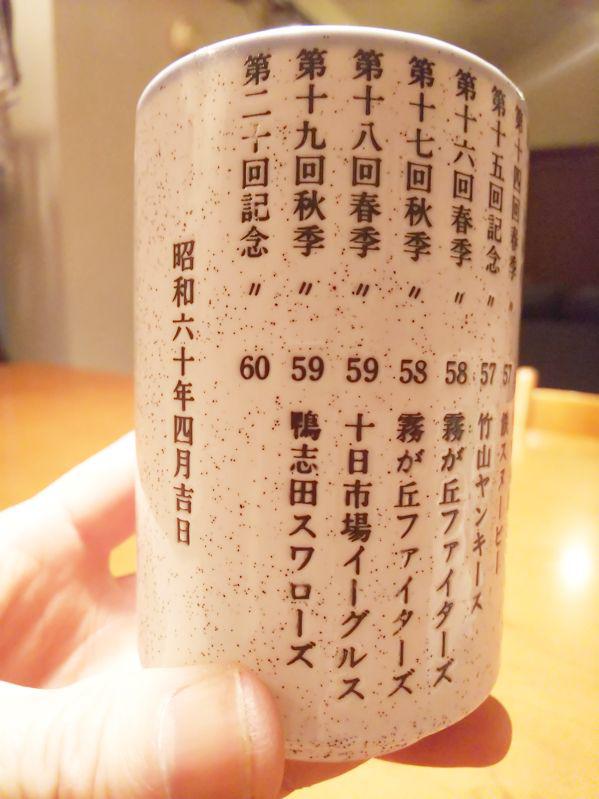 第十四回春季 〃 57 スヌーピー
第十五回記念 〃 57 竹山ヤンキース
第十六回春季 〃 58 霧が丘ファイターズ
第十七回秋季 〃 58 霧が丘ファイターズ
第十八回春季 〃 59 十日市場イーグルス
第十九回秋季 〃 59 鴨志田スワローズ
第二十回記念 〃 60
昭和六十年四月吉日